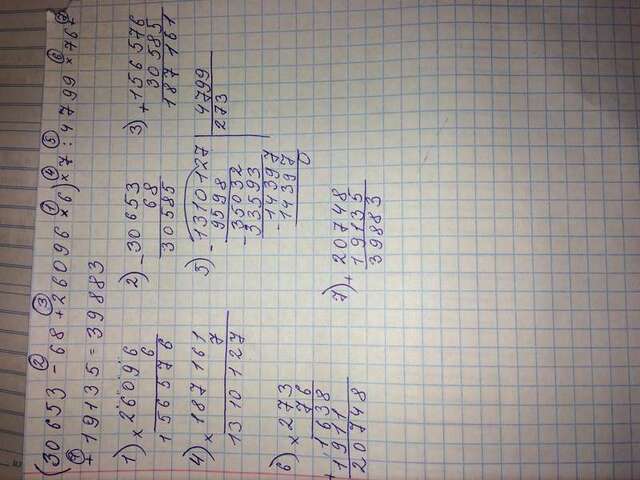 ② ③ ① ④ ⑤ ⑥ ⑦
(30653 - 68 + 26096 × 6) × 7 : 4799 × 76 +
+ 19135 = 39883
1) × 26096
6
156576
2) - 30653
68
30585
3) + 156576
30585
187161
4) × 187161
7
1310127
5) - 1310127 | 4799
9598 | 273
- 35032
33593
- 14397
14397
0
6) × 273
76
+ 1638
1911
20748
7) + 20748
19135
39883